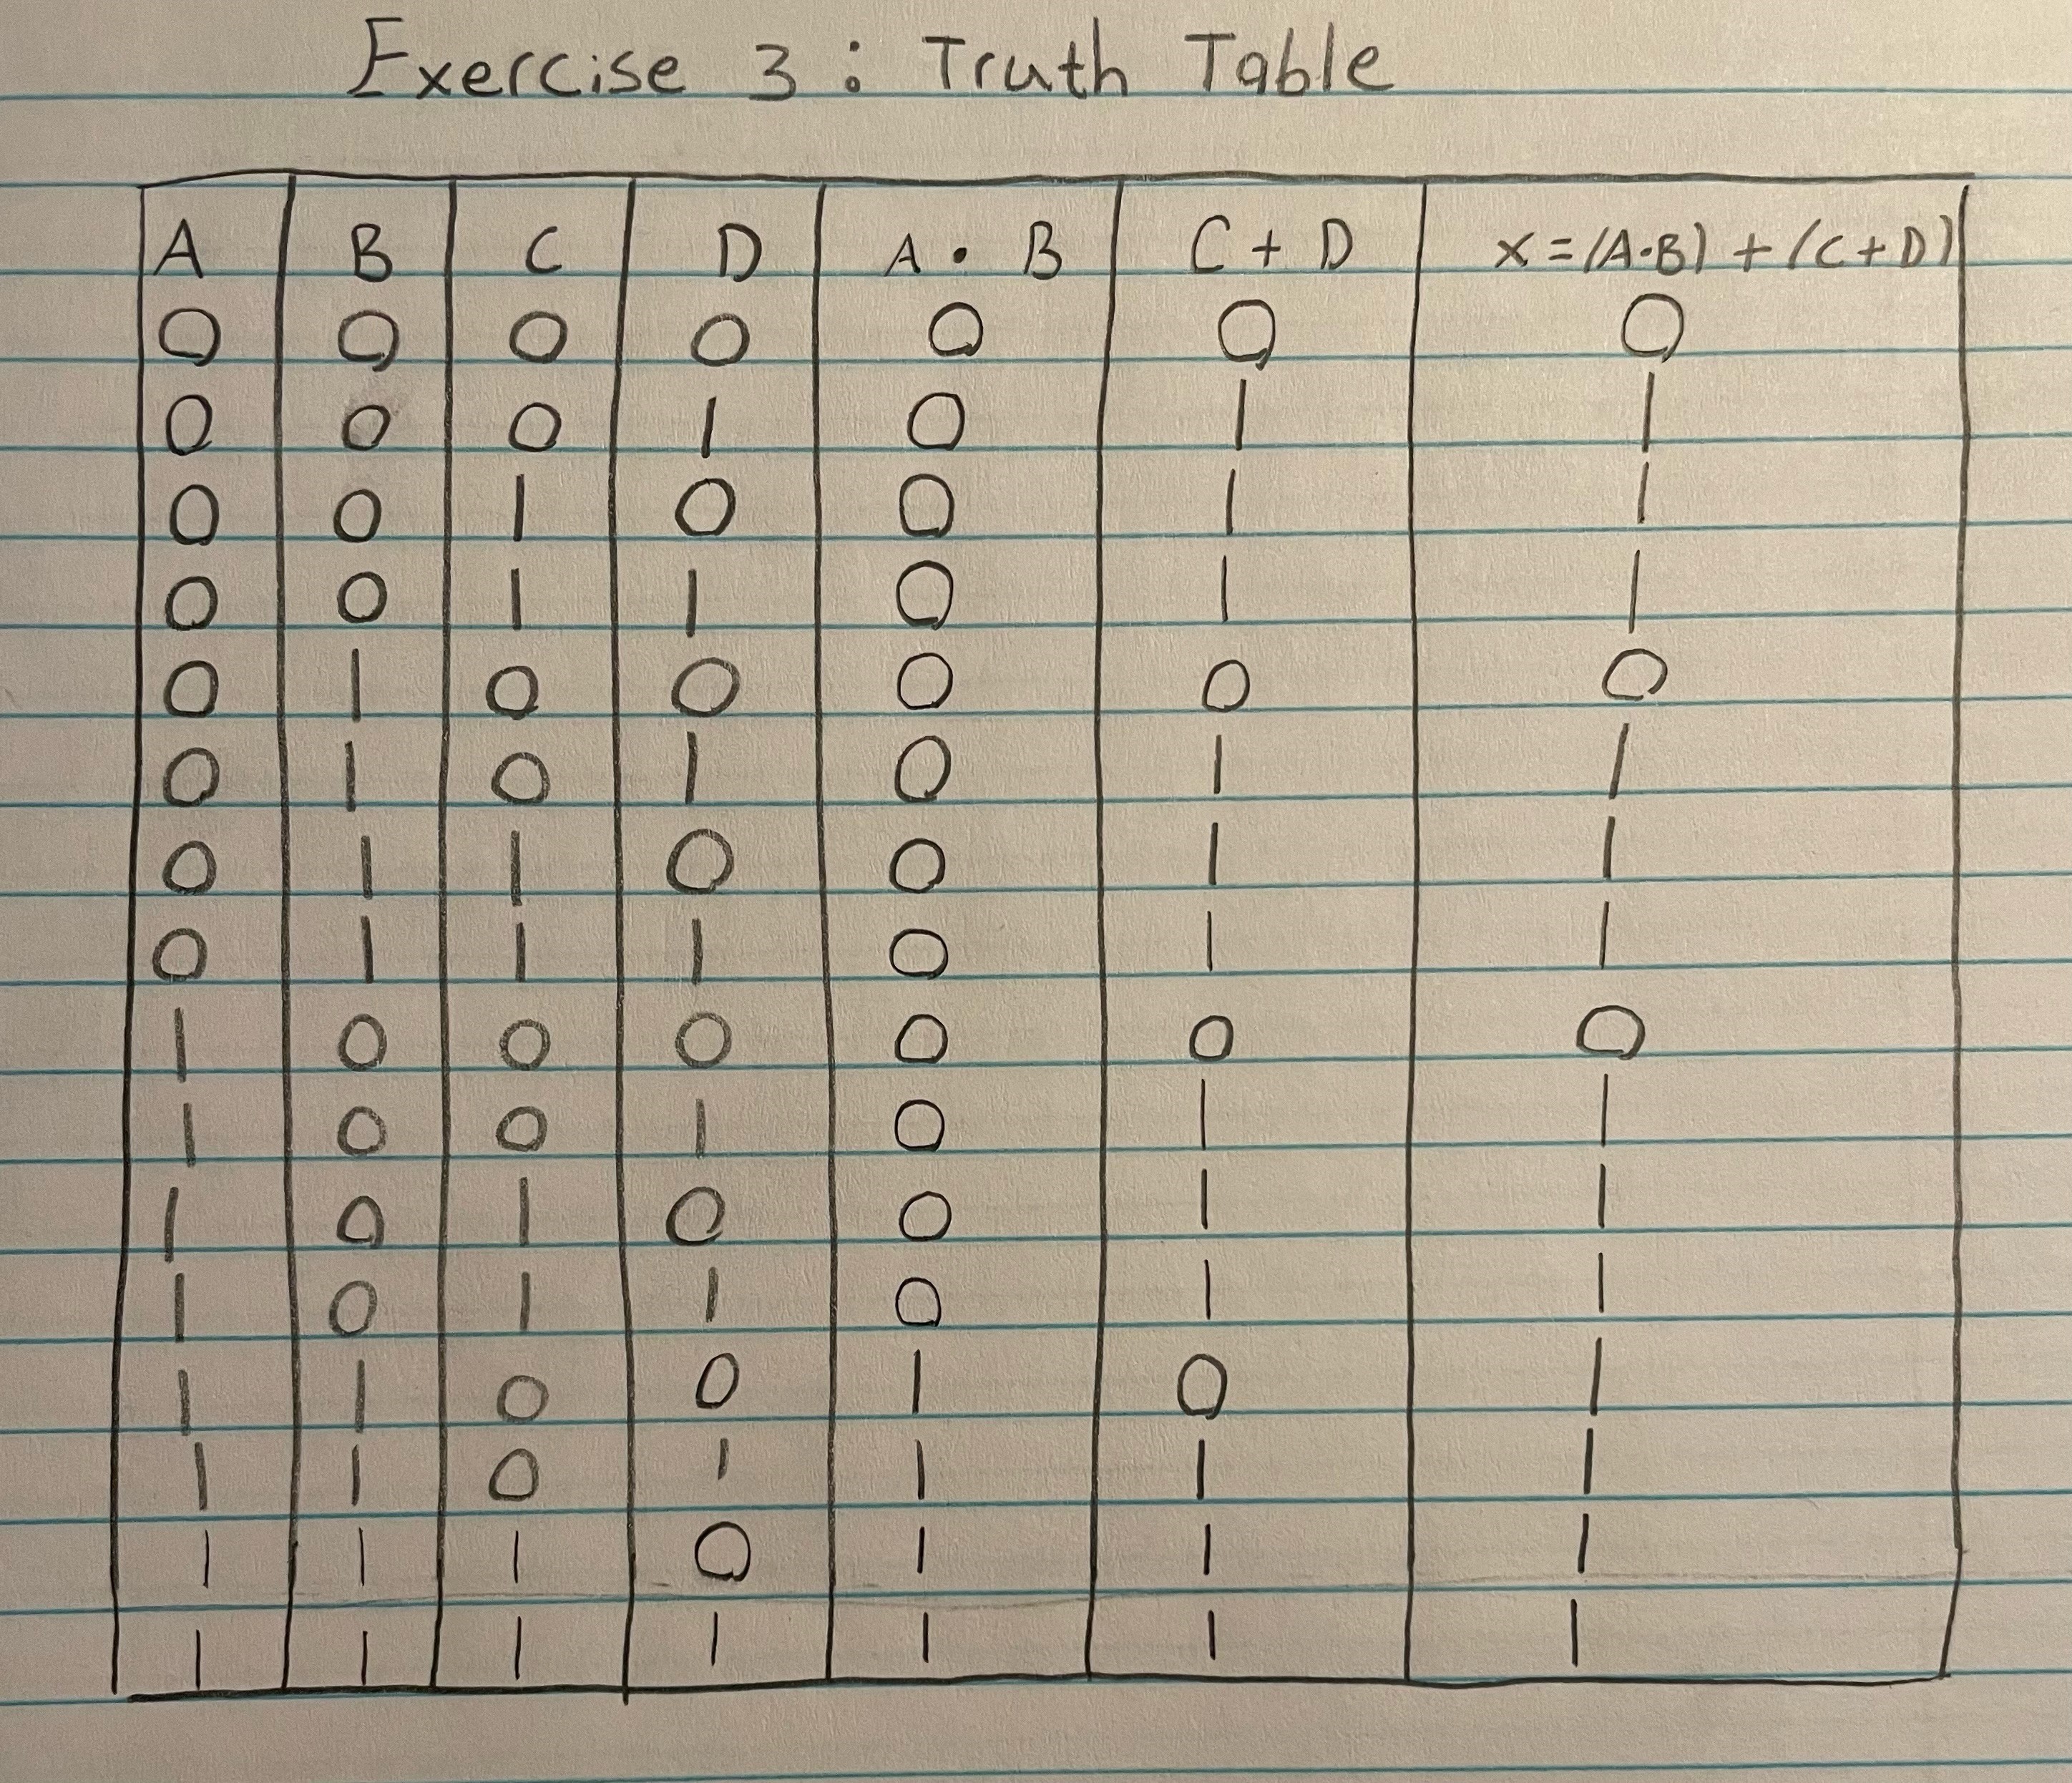 Exercise 3: Truth Table
A B C D A · B C + D x = (A·B) + (C+D)
0 0 0 0 0 0 0
0 0 0 1 0 1 1
0 0 1 0 0 1 1
0 0 1 1 0 1 1
0 1 0 0 0 0 0
0 1 0 1 0 1 1
0 1 1 0 0 1 1
0 1 1 1 0 1 1
1 0 0 0 0 0 0
1 0 0 1 0 1 1
1 0 1 0 0 1 1
1 0 1 1 0 1 1
1 1 0 0 1 0 1
1 1 0 1 1 1 1
1 1 1 0 1 1 1
1 1 1 1 1 1 1